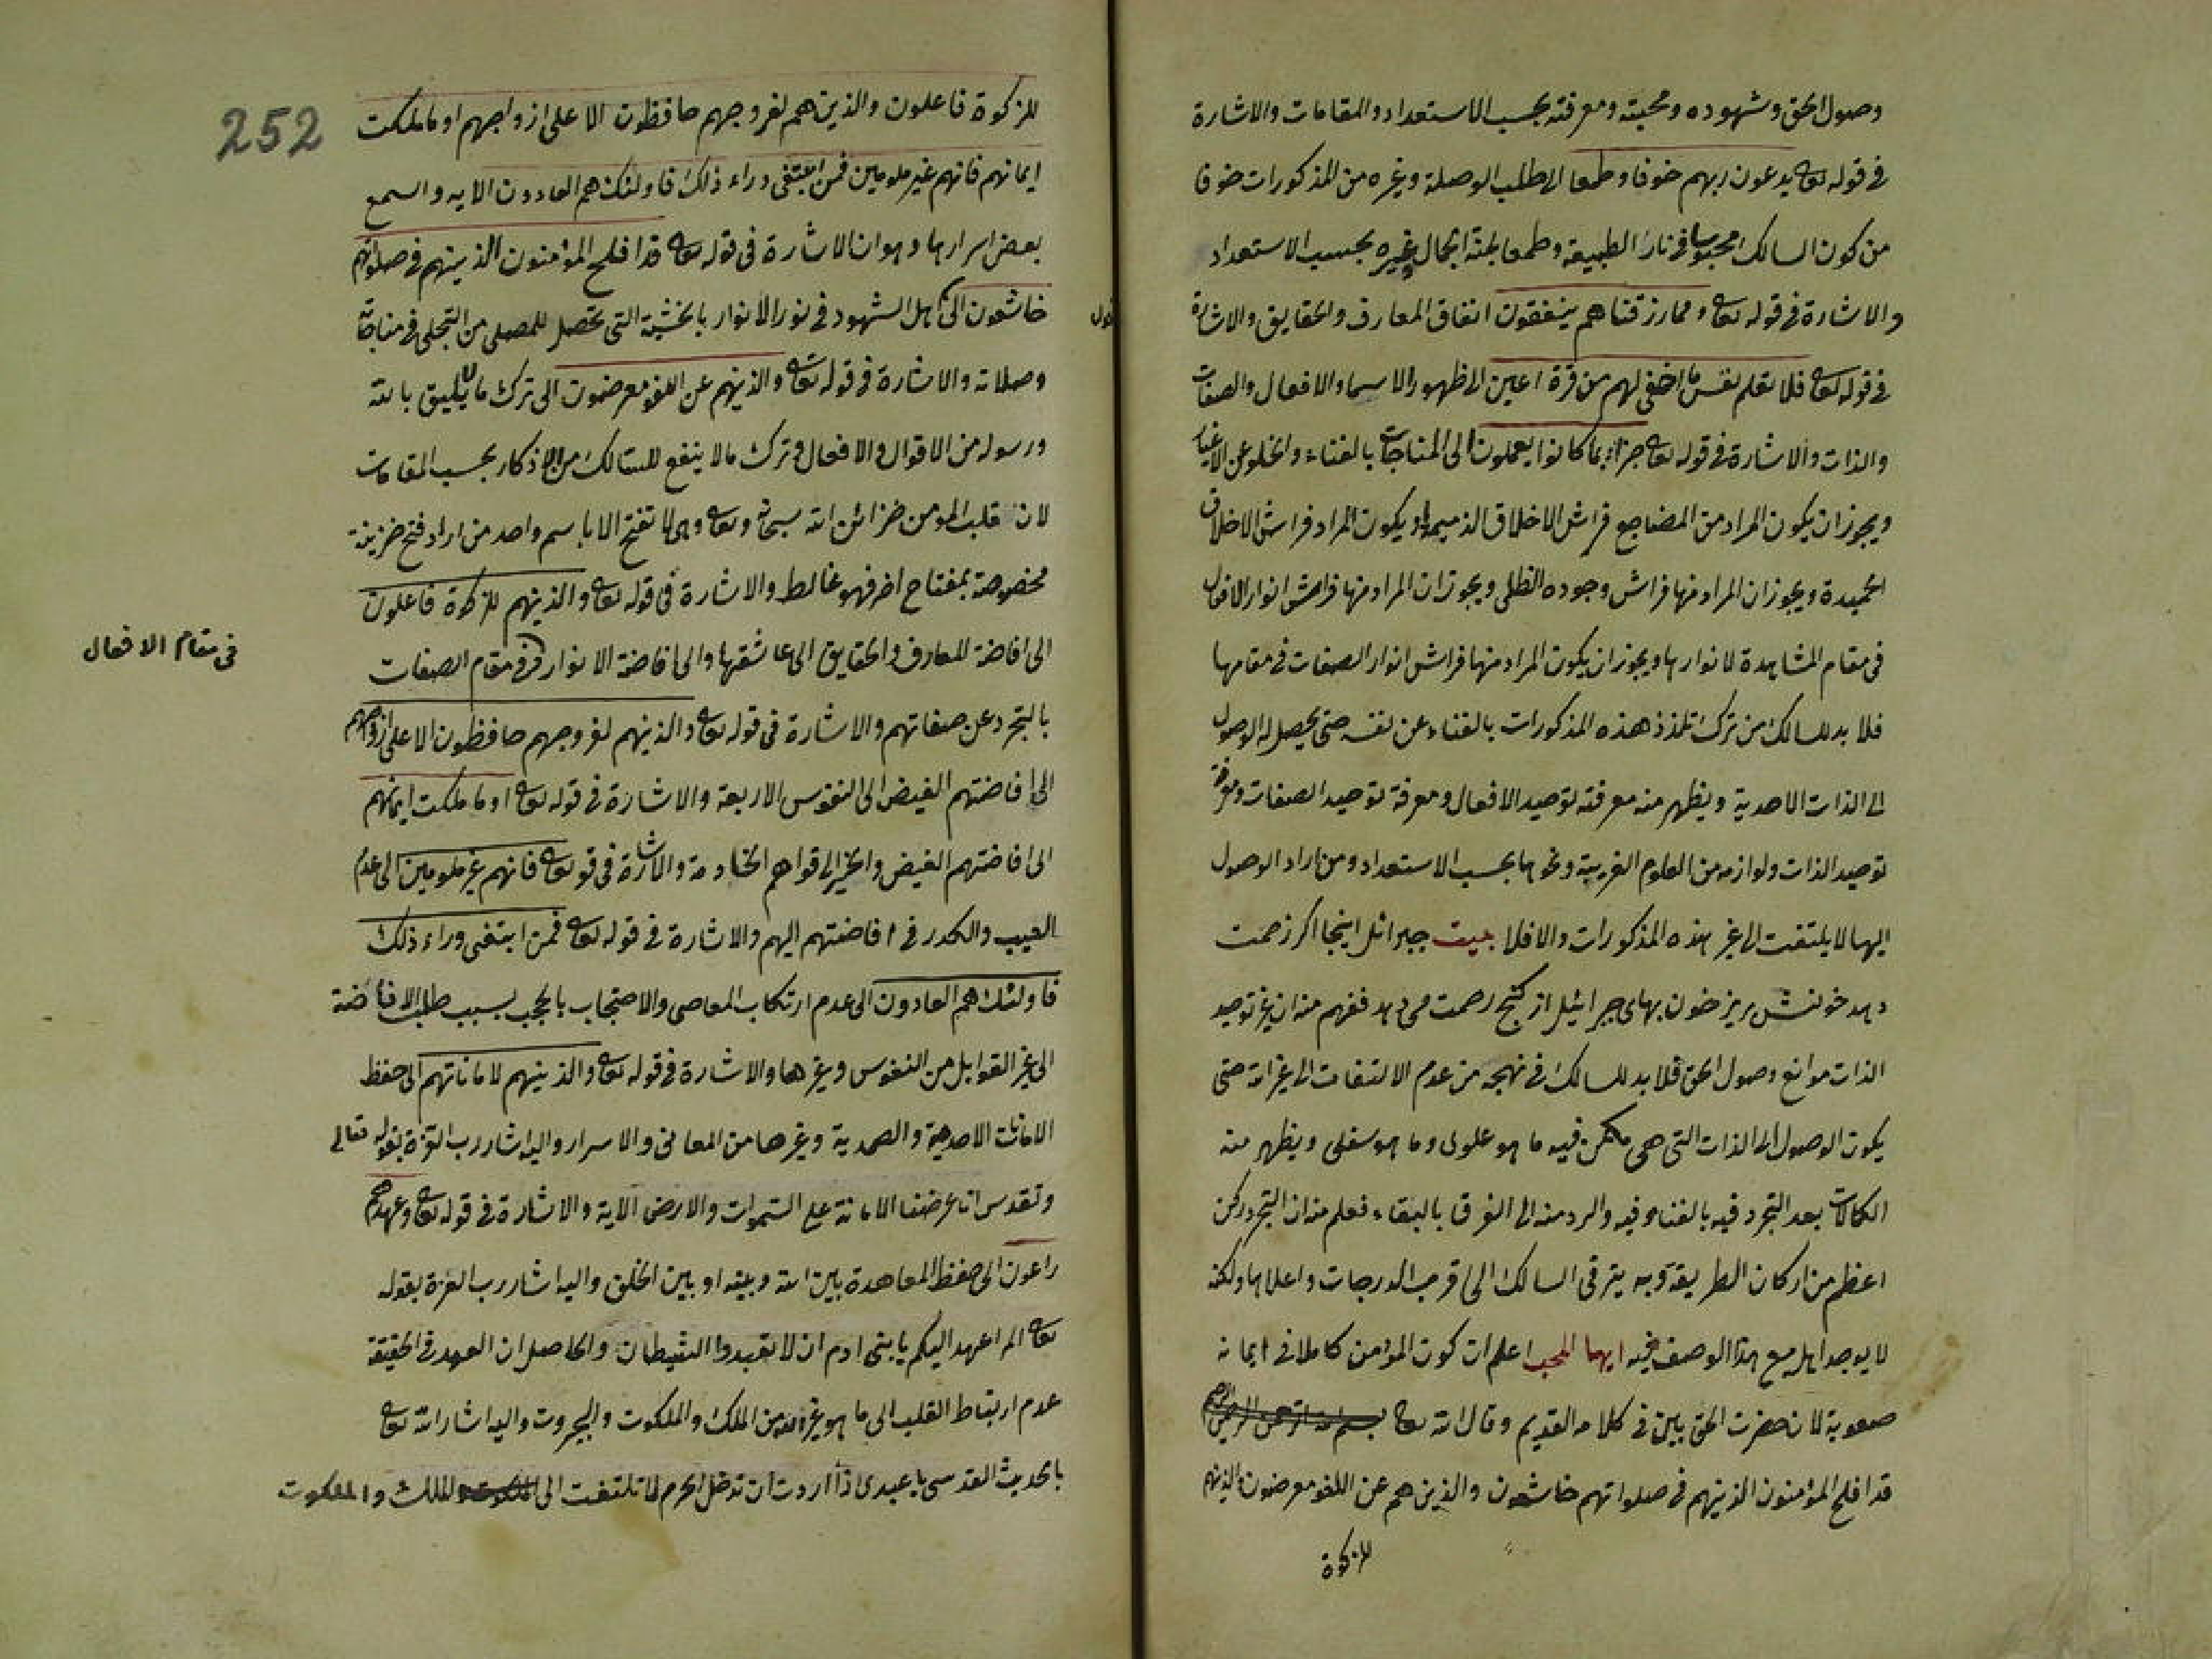 وصول الحق وشهوده ومحبته ومعرفته بحسب الاستعداد والمقامات والاشارة
فى قوله تعالى يدعون ربهم خوفا وطمعا الى طلب الوصلة وغيره من المذكورات خوفا
من كون السالك محبوسا فى نار الطبيعة وطمعا لجنة الجمال وغيره بحسب الاستعداد
والاشارة فى قوله تعالى ومما رزقناهم ينفقون انفاق المعارف والحقايق والاشارة
فى قوله تعالى فلا تعلم نفس ما اخفى لهم من قرة اعين الى ظهور الاسما والافعال والصفات
والذات والاشارة فى قوله تعالى جزاء بما كانوا يعملون الى المناجات بالفناء والخلو عن الاغيار
ويجوز ان يكون المراد من المضاجع فراش الاخلاق الذميمة او يكون المراد فراش الاخلاق
الحميدة ويجوز ان المراد منها فراش وجوده الظلى ويجوز ان المراد منها فراش انوار الافعال
فى مقام المشاهدة لانوارها ويجوز ان يكون المراد منها فراش انوار الصفات فى مقامها
فلا بد للسالك من ترك تلذذ هذه المذكورات بالفناء عن نفسه حتى يحصل له الوصول
الى الذات الاحدية ويظهر منه معرفته توحيد الافعال ومعرفة توحيد الصفات ومعرفة
توحيد الذات ولوازمه من العلوم الغريبة ونحوها بحسب الاستعداد ومن اراد الوصول
اليها لا يلتفت الى غير هذه المذكورات والا فلا بيت جبرائل اينجا اكر زحمت
دهد خونش بريز خون بهاى جبرائيل از كنج رحمت مى دهد ففهم منه ان غير توحيد
الذات موانع وصول الحق فلا بد للسالك فى نهجه من عدم الالتفات الى غير الله حتى
يكون الوصول الى الذات التى هى مكمن فيه ما هو علوى وما هو سفلى ويظهر منه
الكمالات بعد التجرد فيه بالفناء فيه والرد منه الى الفرق بالبقاء فعلم منه ان التجرد ركن
اعظم من اركان الطريقة وبه يترقى السالك الى قرب الدرجات واعلاها ولكنه
لا يوجد اهل مع هذا الوصف فيه ايها المحب اعلم ان كون المؤمن كاملا فى ايمانه
صعوبة لان حضرت الحق بين فى كلامه القديم وقال الله تعالى بسم الله الرحمن الرحيم
قد افلح المؤمنون الذينهم فى صلواتهم خاشعون والذين هم عن اللغو معرضون والذينهم
للزكوة
252
للزكوة فاعلون والذين هم لفروجهم حافظون الا على ازواجهم او ما ملكت
ايمانهم فانهم غير ملومين فمن ابتغى وراء ذلك فاولئك هم العادون الايه واسمع
بعض اسرارها وهو ان الاشارة فى قوله تعالى قد افلح المؤمنون الذينهم فى صلوتهم
خاشعون الى اهل الشهود فى نور الانوار بالخشية التى تحصل للمصلى من التجلى فى مناجاته
وصلاته والاشارة فى قوله تعالى والذينهم عن اللغو معرضون الى ترك ما لا يليق بالله
ورسوله من الاقوال والافعال وترك ما لا ينفع للسالك من الاذكار بحسب المقامات
لان قلب المؤمن خزائن الله سبحانه وتعالى وهى لا تفتح الا باسم واحد من اراد فتح خزينة
مخصوصة بمفتاح اخر فهو غالط والاشارة فى قوله تعالى والذينهم للزكوة فاعلون
الى افاضة المعارف والحقايق الى عاشقها والى افاضة الانوار فى مقام الصفات
فى مقام الافعال
بالتجرد عن صفاتهم والاشارة فى قوله تعالى والذينهم لفروجهم حافظون الا على ازواجهم
الى افاضتهم الفيض الى النفوس الاربعة والاشارة فى قوله تعالى او ما ملكت ايمانهم
الى افاضتهم الفيض والخير الى قواهم الخادمة والاشارة فى قوله تعالى فانهم غير ملومين الى عدم
العيب والكدر فى افاضتهم اليهم والاشارة فى قوله تعالى فمن ابتغى وراء ذلك
فاولئك هم العادون الى عدم ارتكاب المعاصى والاحتجاب بالحجب بسبب طلب الافاضة
الى غير القوابل من النفوس وغيرها والاشارة فى قوله تعالى والذينهم لاماناتهم الى حفظ
الامانات الاحدية والصمدية وغيرها من المعانى والاسرار واليه اشار رب العزة بقوله تعالى
وتقدس انا عرضنا الامانة على السموات والارض الاية والاشارة فى قوله تعالى وعهدهم
راعون الى حفظ المعاهدة بين الله وبينه او بين الخلق واليه اشار رب العزة بقوله
تعالى الم اعهد اليكم يا بنى ادم ان لا تعبدوا الشيطان والحاصل ان العهد فى الحقيقة
عدم ارتباط القلب الى ما هو غير الله من الملك والملكوت والجبروت واليه اشار الله تعالى
بالحديث القدسى يا عبدى اذا اردت ان تدخل الحرم لا تلتفت الى الملك والملكوت